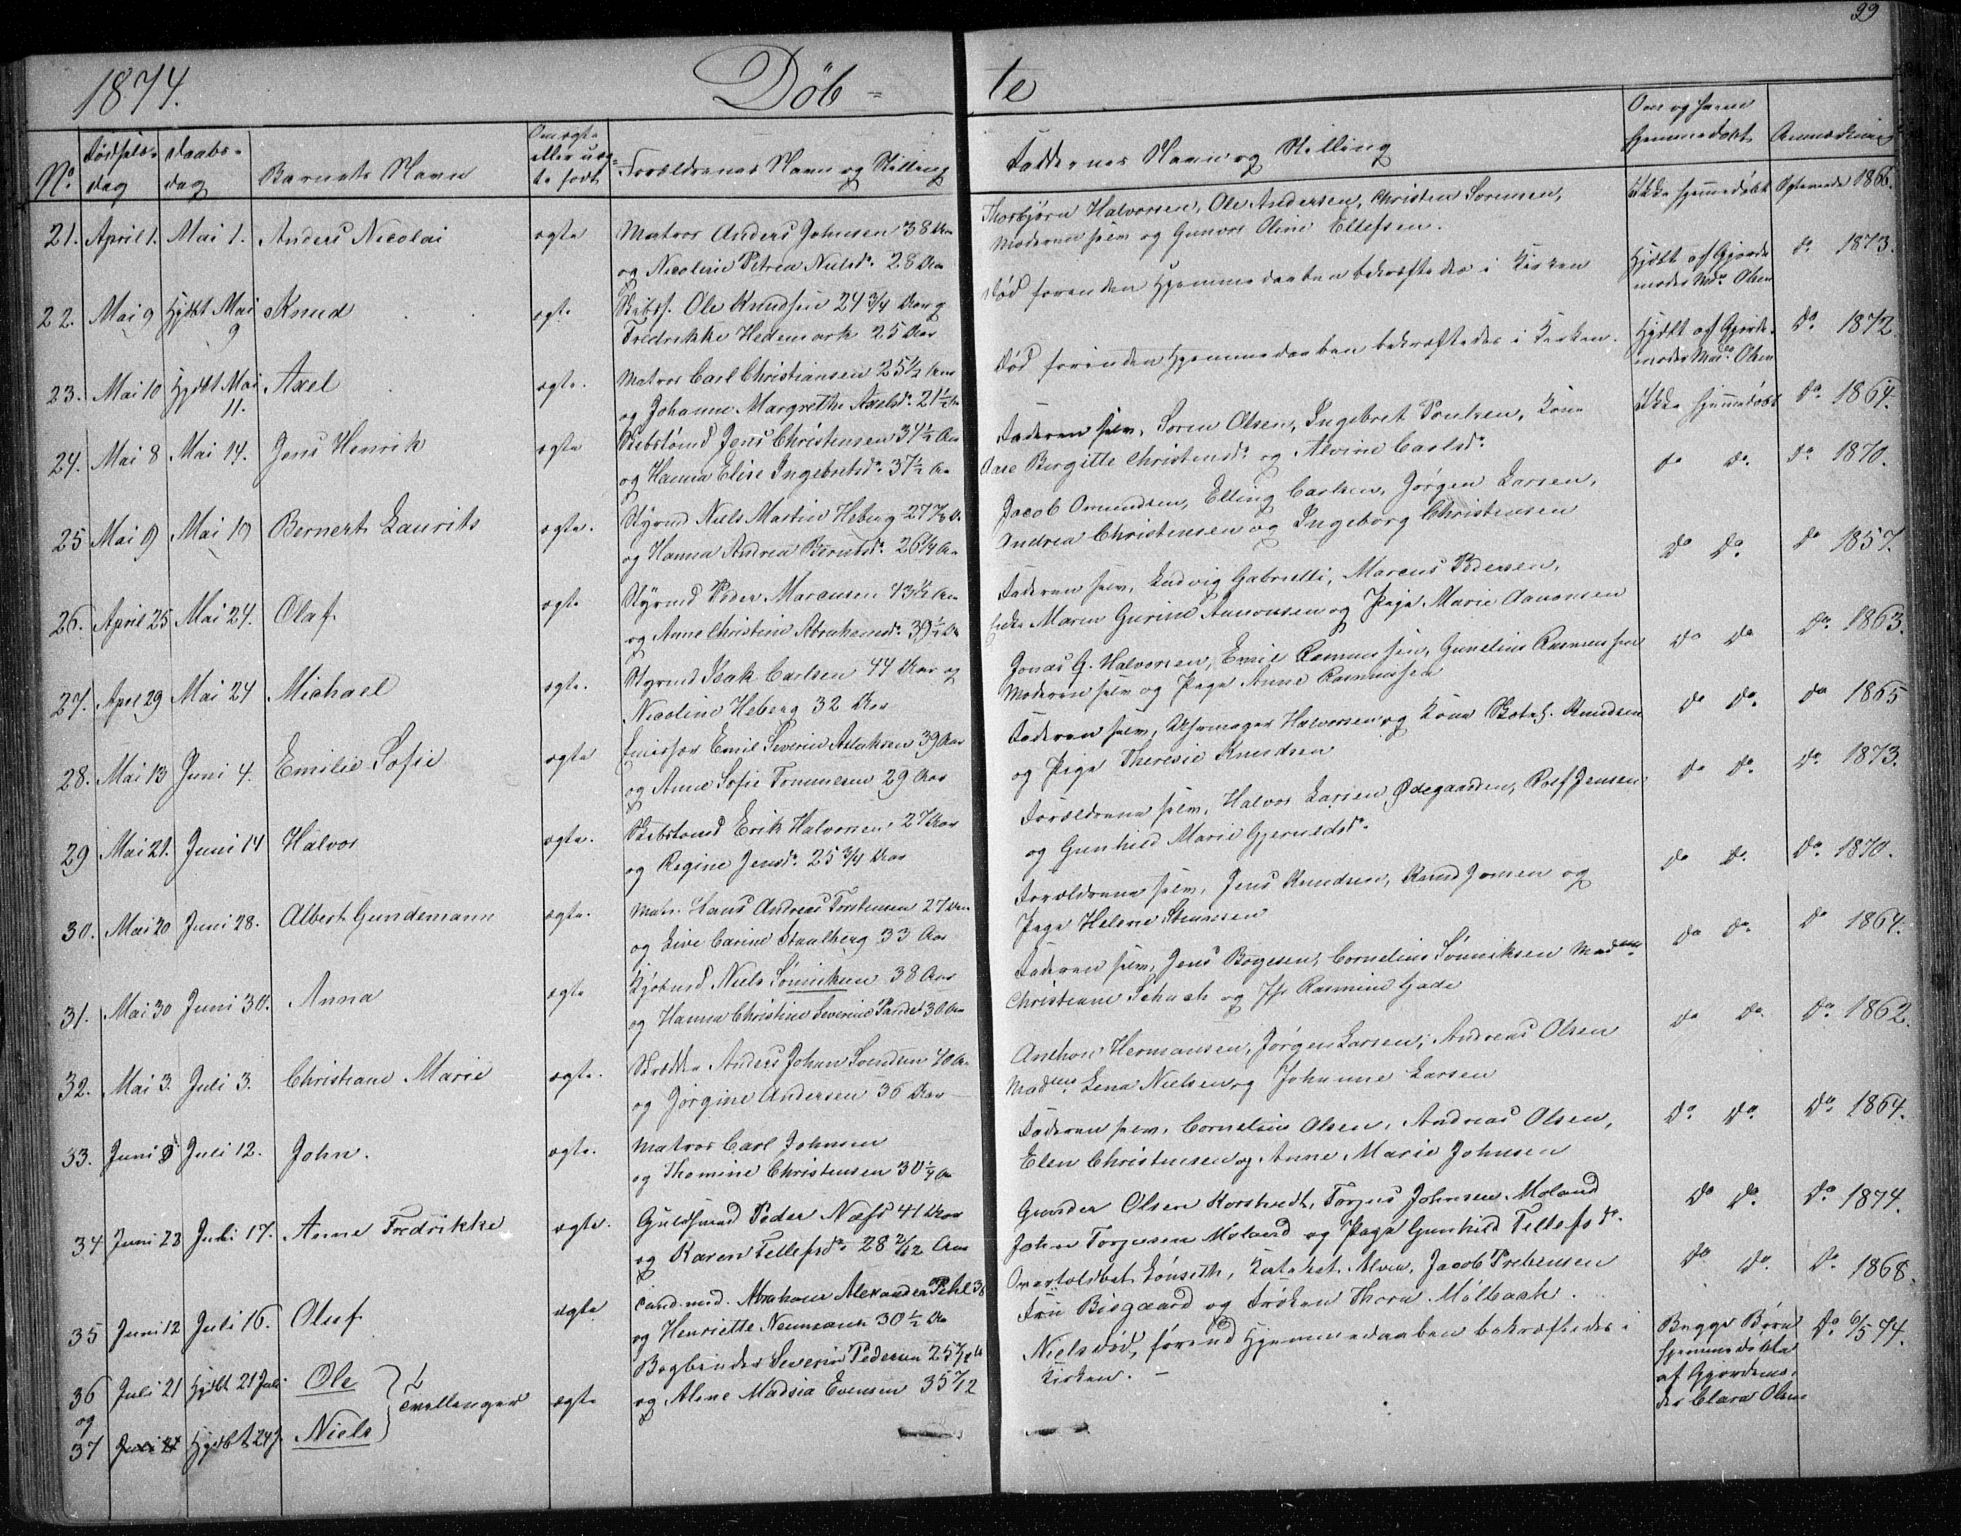 99
1874. Døb- te
No. Fødsels-dag Daabs-dag Barnets Navn Om ægte eller uæg-te født Forældrenes Navn og Stilling Faddernes Navn og Stilling Om og hvem hjemmedøbt Anmærkning
21. April 1. Mai 1. Anders Nicolai ægte Matros Anders Johnsen 38 Aar Thorbjørn Halvorsen, Ole Andersen, Christen Sørensen, Ikke hjemmedøbt Ægteviede 1866.
og Nicoline Petrea Nielsdr. 28 Aar Moderen selv og Gunvor Oline Ellefsen.
22. Mai 9 Hjdbt Mai 9 Knud ægte Skibsf. Ole Knudsen 24 3/4 Aar og Død forinden Hjemmedaaben bekræftedes i Kirken Hjdbt af Gjorde- Do. 1873.
Fredrikke Hedemark 25 Aar moder Md. Olsen
23. Mai 10 Hjdbt Mai 11. Axel ægte. Matros Carl Christiansen 25 1/2 Aar Død forinden Hjemmedaaben bekræftedes i Kirken. Hjdbt af Gjorde- Do. 1872
og Johanne Margrethe Axelsdr. 21 1/2 Aar moder Mad. Olsen
24. Mai 8 Mai 14. Jens Henrik ægte Skibstømd Jens Christensen 34 1/2 Aar Faderen selv, Søren Olsen, Ingebret Poulsen, Kone Ikke hjemmedøbt Do. 1864.
og Hanna Elise Ingebretsdr. 37 1/2 Aar Aase Birgitte Christensdr. og Alvine Carlsdr.
25 Mai 9 Mai 19 Bernert Laurits ægte. Styrmd Niels Martin Heberg 27 Jacob Omundsen, Elling Carlsen, Jørgen Larsen, Do Do. Do. 1870.
og Hanna Andrea Berntsdr. 26 1/4 Aar Andrea Christensen og Ingeborg Christensen
26. April 25 Mai 24. Olaf ægte Styrmd Peder Marcusen 43 1/2 Aar Faderen selv, Ludvig Gabrielli, Marcus Pedersen, Do Do. Do 1857.
og Anne Christine Abrahamsdr. 39 1/2 Aar Enke Maren Gurine Aanonsen og Pige Marie Aanonsen
27. April 29 Mai 24 Michael ægte. Styrmd Isak Carlsen 44 Aar og Jonas G. Halvorsen, Emil Rasmussen, Gunelius Rasmussen Do Do Do. 1863.
Nicoline Heberg 32 Aar Moderen selv og Pige Anne Rasmussen
28. Mai 13 Juni 4. Emilie Sofie ægte Emil Severin Aslaksen 39 Aar Faderen selv, Uhrmager Halvorsen og Kone Knudsen Do Do. Do 1865
og Anne Sofie Tommesen 29 Aar og Pige Theresie Knudsen
29 Mai 21. Juni 14 Halvor ægte. Skibstømd Erik Halvorsen 27 Aar Forældrene selv, Halvor Larsen Ødegaarden, Rolf Jensen Do Do. Do. 1873.
og Regine Jensdr. 25 3/4 Aar og Gunhild Marie Gjeruldsdr.
30. Mai 20 Juni 28. Albert Gundemann ægte. Matr. Hans Andreas Torstensen 27 Aar Forældrene selv, Jens Knudsen, Knud Jonsen og Do Do. Do. 1870.
og Live Carine Staalberg 33 Aar Pige Helene Stenersen
31. Mai 30 Juni 30. Anna ægte Kjøbmd Niels Sønniksen 38 Aar Faderen selv, Jens Bogesen, Cornelius Sønniksen Madme Do Do. Do 1864.
og Hanna Christine Severine 30 Aar Christiane Schach og Jfr Rasmine Gade
32. Mai 3. Juli 3. Christiane Marie ægte. Skrædder Anders Johan Svendsen 40 Aar Anthon Hermansen, Jørgen Larsen, Andreas Olsen Do Do. Do. 1862.
og Jørgine Andersen 36 Aar Madme Lena Nielsen og Johanne Larsen
33. Juni Juli 12. John. ægte. Matros Carl Johnsen Faderen selv, Cornelius Olsen, Andreas Olsen, Do Do. Do. 1864.
og Thomine Christensen 30 1/4 Aar Elen Christensen og Anne Marie Johnsen
34 Juni 23 Juli 17. Anne Fredrikke ægte. Guldsmed Peder Næss 41 Aar Gunder Olsen Korstvedt, Torjus Johnsen Moland Do Do. Do 1874.
og Karen Tellefsdr. 28 2/12 Aar John Torjusen Moland og Pige Gunhild Tellefsdr.
35 Juni 12 Juli 16. Oluf ægte Cand. med. Abraham Alexander Pihl 38 Overtoldbet. Lønseth, Katekat Alver, Jacob Prebensen Do Do. Do. 1868.
og Henriette Neumann 30 1/2 Aar Fru Bisgaard og Frøken Thora Mølbach.
36 Juli 21 Hjdbt 21 Juli Ole } 2 tvillinger ægte Bogbinder Severin Pedersen 25 Niels død, førend Hjemmedaaben bekræftedes i Begge Børn Do. 6/5 74.
og og Alene Madsia Evensen 35 7/12 Kirken. - hjemmedøbte
37 Juli 21 Hjdbt 24 J. Niels af Gjordemo-
der Clara Olsen